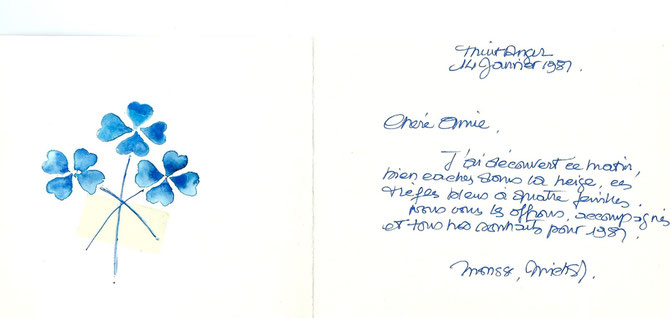 14 Janvier 1987.
Chère Annie,
J'ai découvert ce matin,
bien cachés dans la neige, ces
trèfles bleus à quatre feuilles.
Nous vous les offrons, accompagnés
et tous nos souhaits pour 1987.
Monse, Michel.